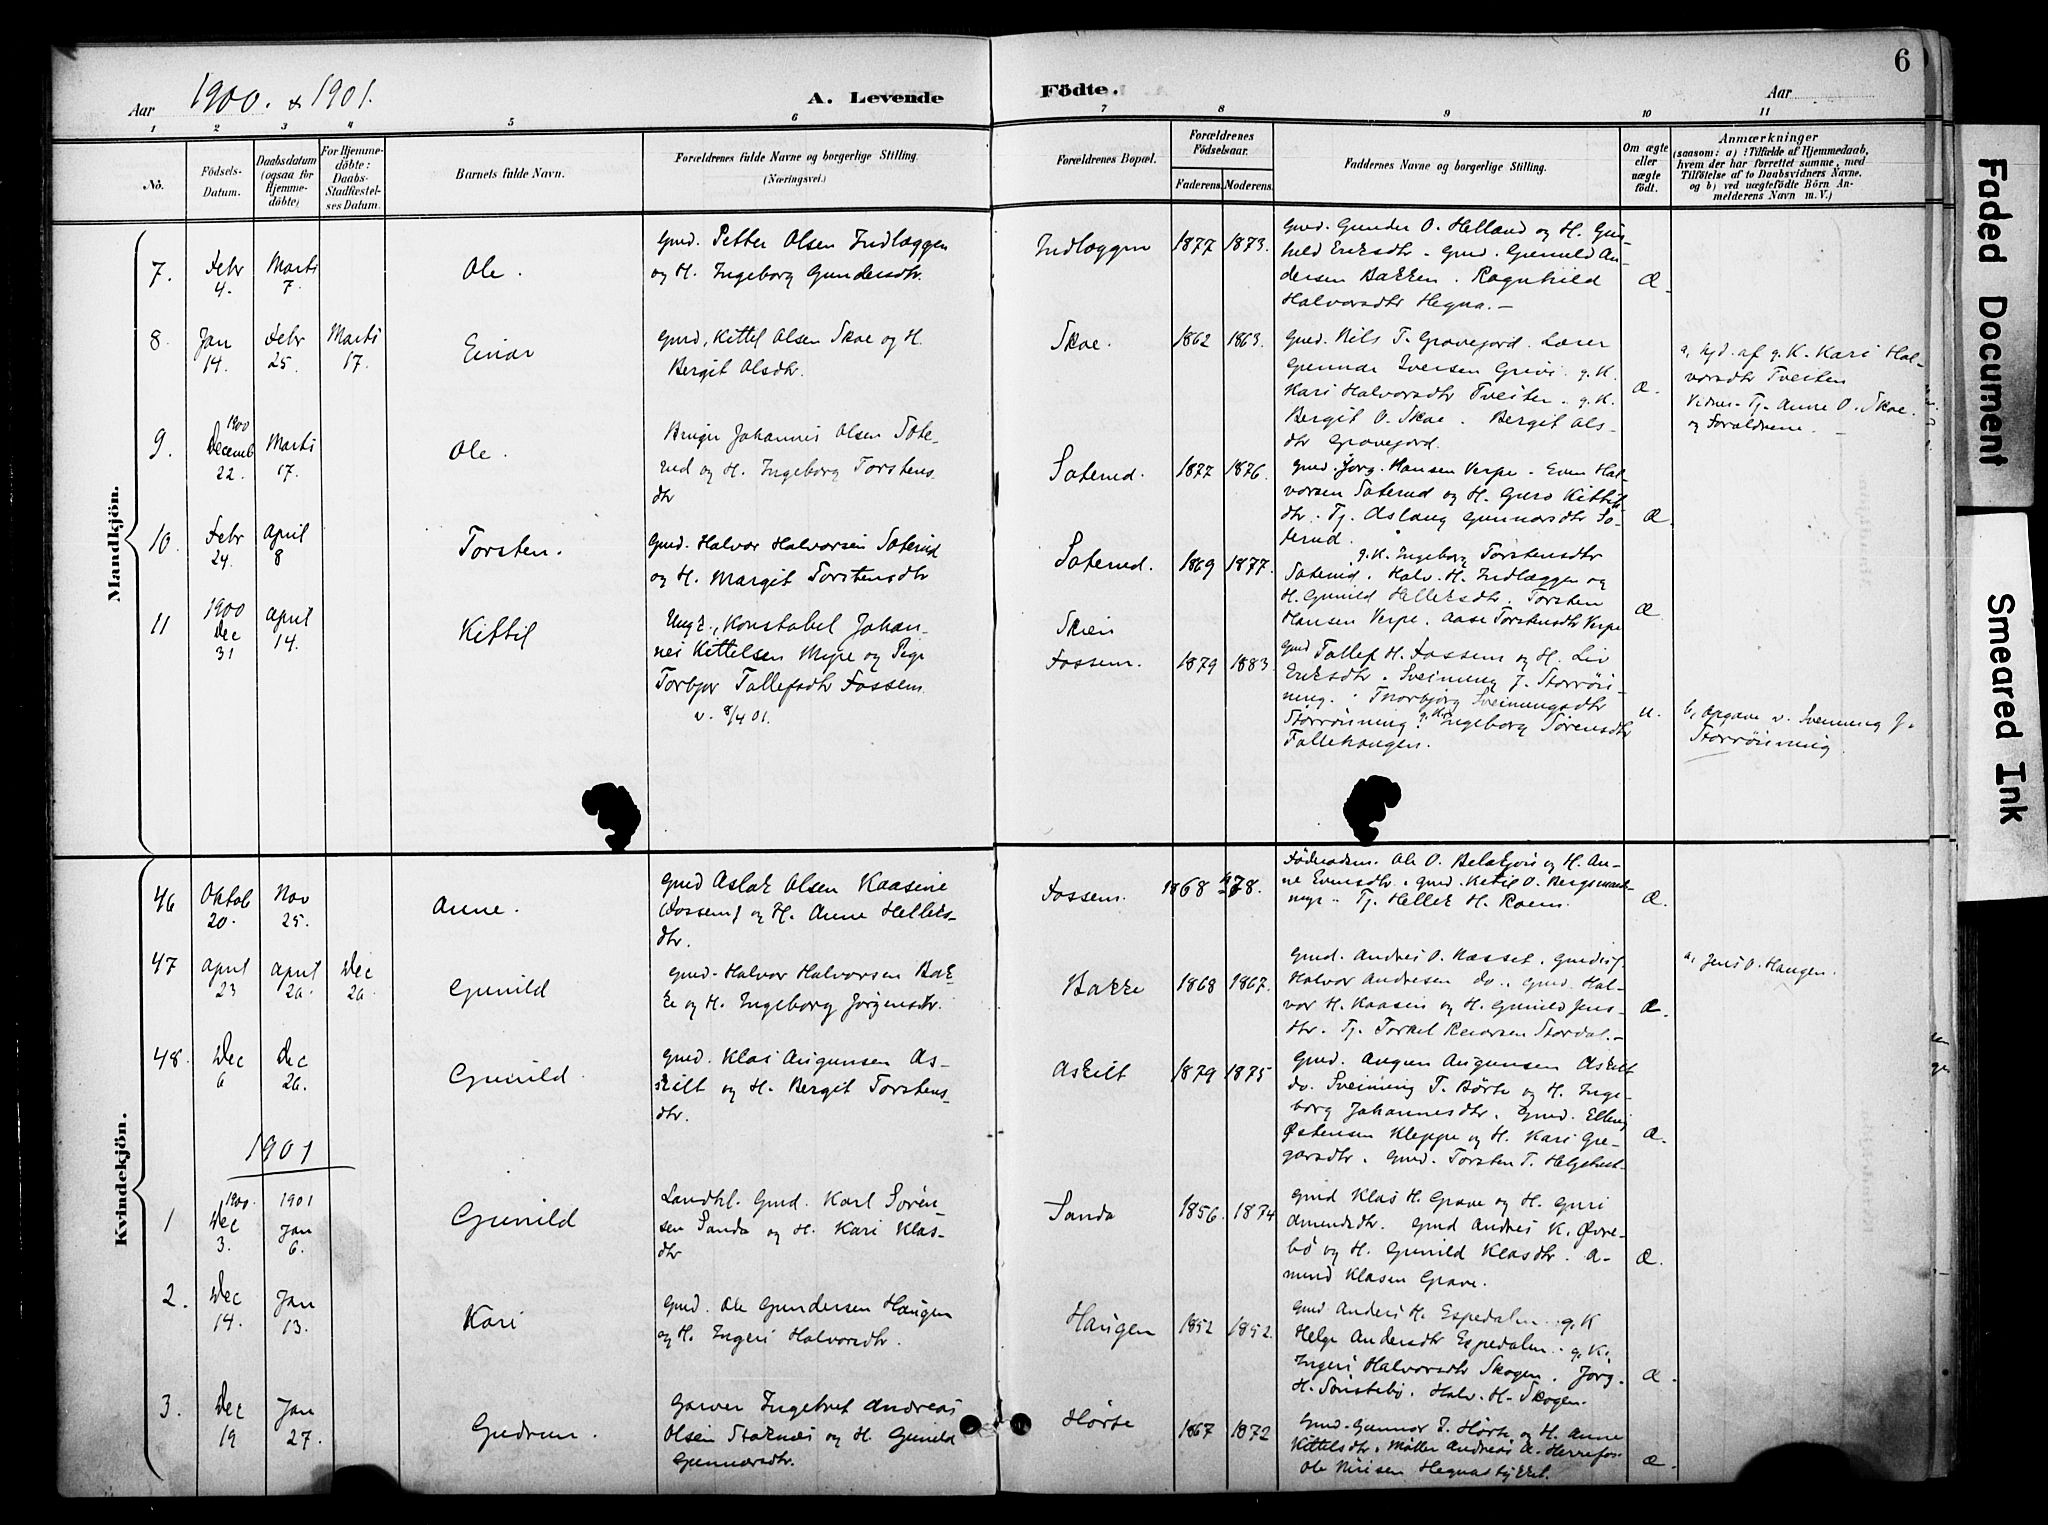 6
Aar 1900. & 1901.
A. Levende Födte.
Aar
1 2 3 4 5 6 7 8 9 10 11
No.
Födsels-Datum.
Daabsdatum (ogsaa for Hjemme-döbte)
For Hjemme-döbte: Daabs-Stadfæstel-ses Datum.
Barnets fulde Navn.
Forældrenes fulde Navne og borgerlige Stilling.
(Næringsvei.)
Forældrenes Bopæl.
Forældrenes Födselsaar.
Faderens. Moderens.
Faddernes Navne og borgerlige Stilling.
Om ægte eller uægte födt.
Anmærkninger
(saasom: a) i Tilfælde af Hjemmedaab,
hvem der har forrettet samme, med
Tilföielse af to Daabsvidners Navne.
og b) ved uægtefödte Börn An-
melderens Navn m. V.)
Mandkjön.
7. Febr 4. Marts 7. Ole.
Gmd. Petter Olsen Indlæggen
og H. Ingeborg Gundersdtr.
Indlæggen 1877 1873.
Gmd. Gunder O. Helland og H. Gun-
hild Eriksdtr. Gmd. Gunuld An-
dersen Bakken. Ragnhild
Halvorsdtr Hegna.
Æ.
8. Jan 14. Febr 25. Marts 17. Einar
Gmd. Kittil Olsen Skoe og H.
Bergit Olsdtr.
Skoe. 1862 1863.
Gmd. Nils T. Gravejord. Lærer
Gunnar Iversen Grivi. g. K.
Kari Halvorsdtr Tveiten. g. K.
Bergit O. Skoe. Bergit Ols-
dtr Gravejord.
Æ.
a, hjd. af g. K. Kari Hal-
vorsdtr Tveiten
Vidner. Tj. Anne O. Skoe.
og Forældrene.
9. 1900 Decemb 22. Marts 17. Ole.
Bruger Johannes Olsen Sote-
rud og H. Ingeborg Torstens
dtr
Soterud. 1877 1876.
Gmd. Jörg. Hansen Verpe. Even Hal-
vorsen Soterud og H. Guro Kittils
dtr. Tj. Aslaug Gunnarsdtr So-
terud.
Æ.
10. Febr 24. April 8 Torsten.
Gmd. Halvor Halvorsen Soterud
og H. Margit Torstensdtr
Soterud. 1869 1877.
g. K. Ingeborg Torstensdtr
Soterud. Halv. H. Indlæggen og
H. Gunild Helleksdtr. Torsten
Hansen Verpe. Aase Torstensdtr Verpe
Æ.
11 1900 Dec 31 April 14. Kittil
Ungk., Konstabel Johan-
nes Kittelsen Myre og Pige
Torbjør Tallefsdtr Fossem
v. 8/4 01.
Skien
Fossem. 1879 1883.
Gmd Tallef H. Fossem og H. Liv
Eriksdtr. Sveinung J. Storröi-
ning. Thorbjörg Sveinungsdtr
Störröining. g. K. Ingeborg Sörensdtr
Tallehaugen.
u.
b, Opgave v. Sveinung J.
Storröinning.
Kvindekjön.
46 Oktob 20. Nov 25. Anne.
Gmd Aslak Olsen Kaasine
(Fossem) og H. Anne Helleks-
dtr.
Fossem. 1868 1878.
Födraadsm. Ole O. Belatjön og H. An-
ne Evensdtr. Gmd. Ketil O. Bergsmark-
myr. Tj. Hellek H. Roem.
Æ.
47 April 23 April 20. Dec 20. Gunild
Gmd. Halvor Halvorsen Bak-
ke og H. Ingeborg Jørgensdtr.
Bakke 1868 1867.
Gmd. Andres O. Næsset. Gmdss.
Halvor Andresen do., Gmd. Hal-
vor H. Kaasin og H. Gunild Jens-
dtr. Tj. Torkel Reiersen Stordal.
Æ.
a, Jens O. Haugen.
48. Dec 6 Dec 26. Gunild
Gmd. Klas Augunsen As-
kilt og H. Bergit Torstens-
dtr.
Askilt 1879 1875
Gmd. Augun Augunsen Askilt
do. Sveinung T. Börte og H. Inge-
borg Johannesdtr. Gmd. Elling
Østensen Kleppe og H. Kari Gre-
garsdtr. Gmd. Torsten T. Helgehest.
Æ.
1901
1 1900. Dec 3. 1901 Jan 6. Gunild
Landhl. Gmd. Karl Sören-
sen Sanda og H. Kari Klas-
dtr
Sanda 1856. 1874
Gmd Klas H. Grave og H. Guri
Amundsdtr. Gmd Andres K. Øvre-
bö og H. Gunild Klasdtr. A-
mund Klasen Grave.
Æ.
2. Dec 14. Jan 13. Kari
Gmd. Ole Gundersen Haugen
og H. Ingeri Halvorsdtr.
Haugen 1852 1852.
Gmd Anders H. Espedalen. g. K
Helge Andersdtr Espedalen. g. K.
Ingeri Halvorsdtr Skogen. Jörg.
H. Sönstebö. Halv. H. Skogen.
Æ.
3. Dec 19 Jan 27. Gudrun.
Garver Ingebret Andreas
Olsen Staknes og H. Gunild
Gunnarsdtr.
Hörte 1867 1872
Gmd. Gunnar T. Hörte og H. Anne
Kittilsdtr. Møller Andreas A. Herrefos
Ole Nirisen Hegnasbykset.
Æ.
Faded Document
Smeared Ink